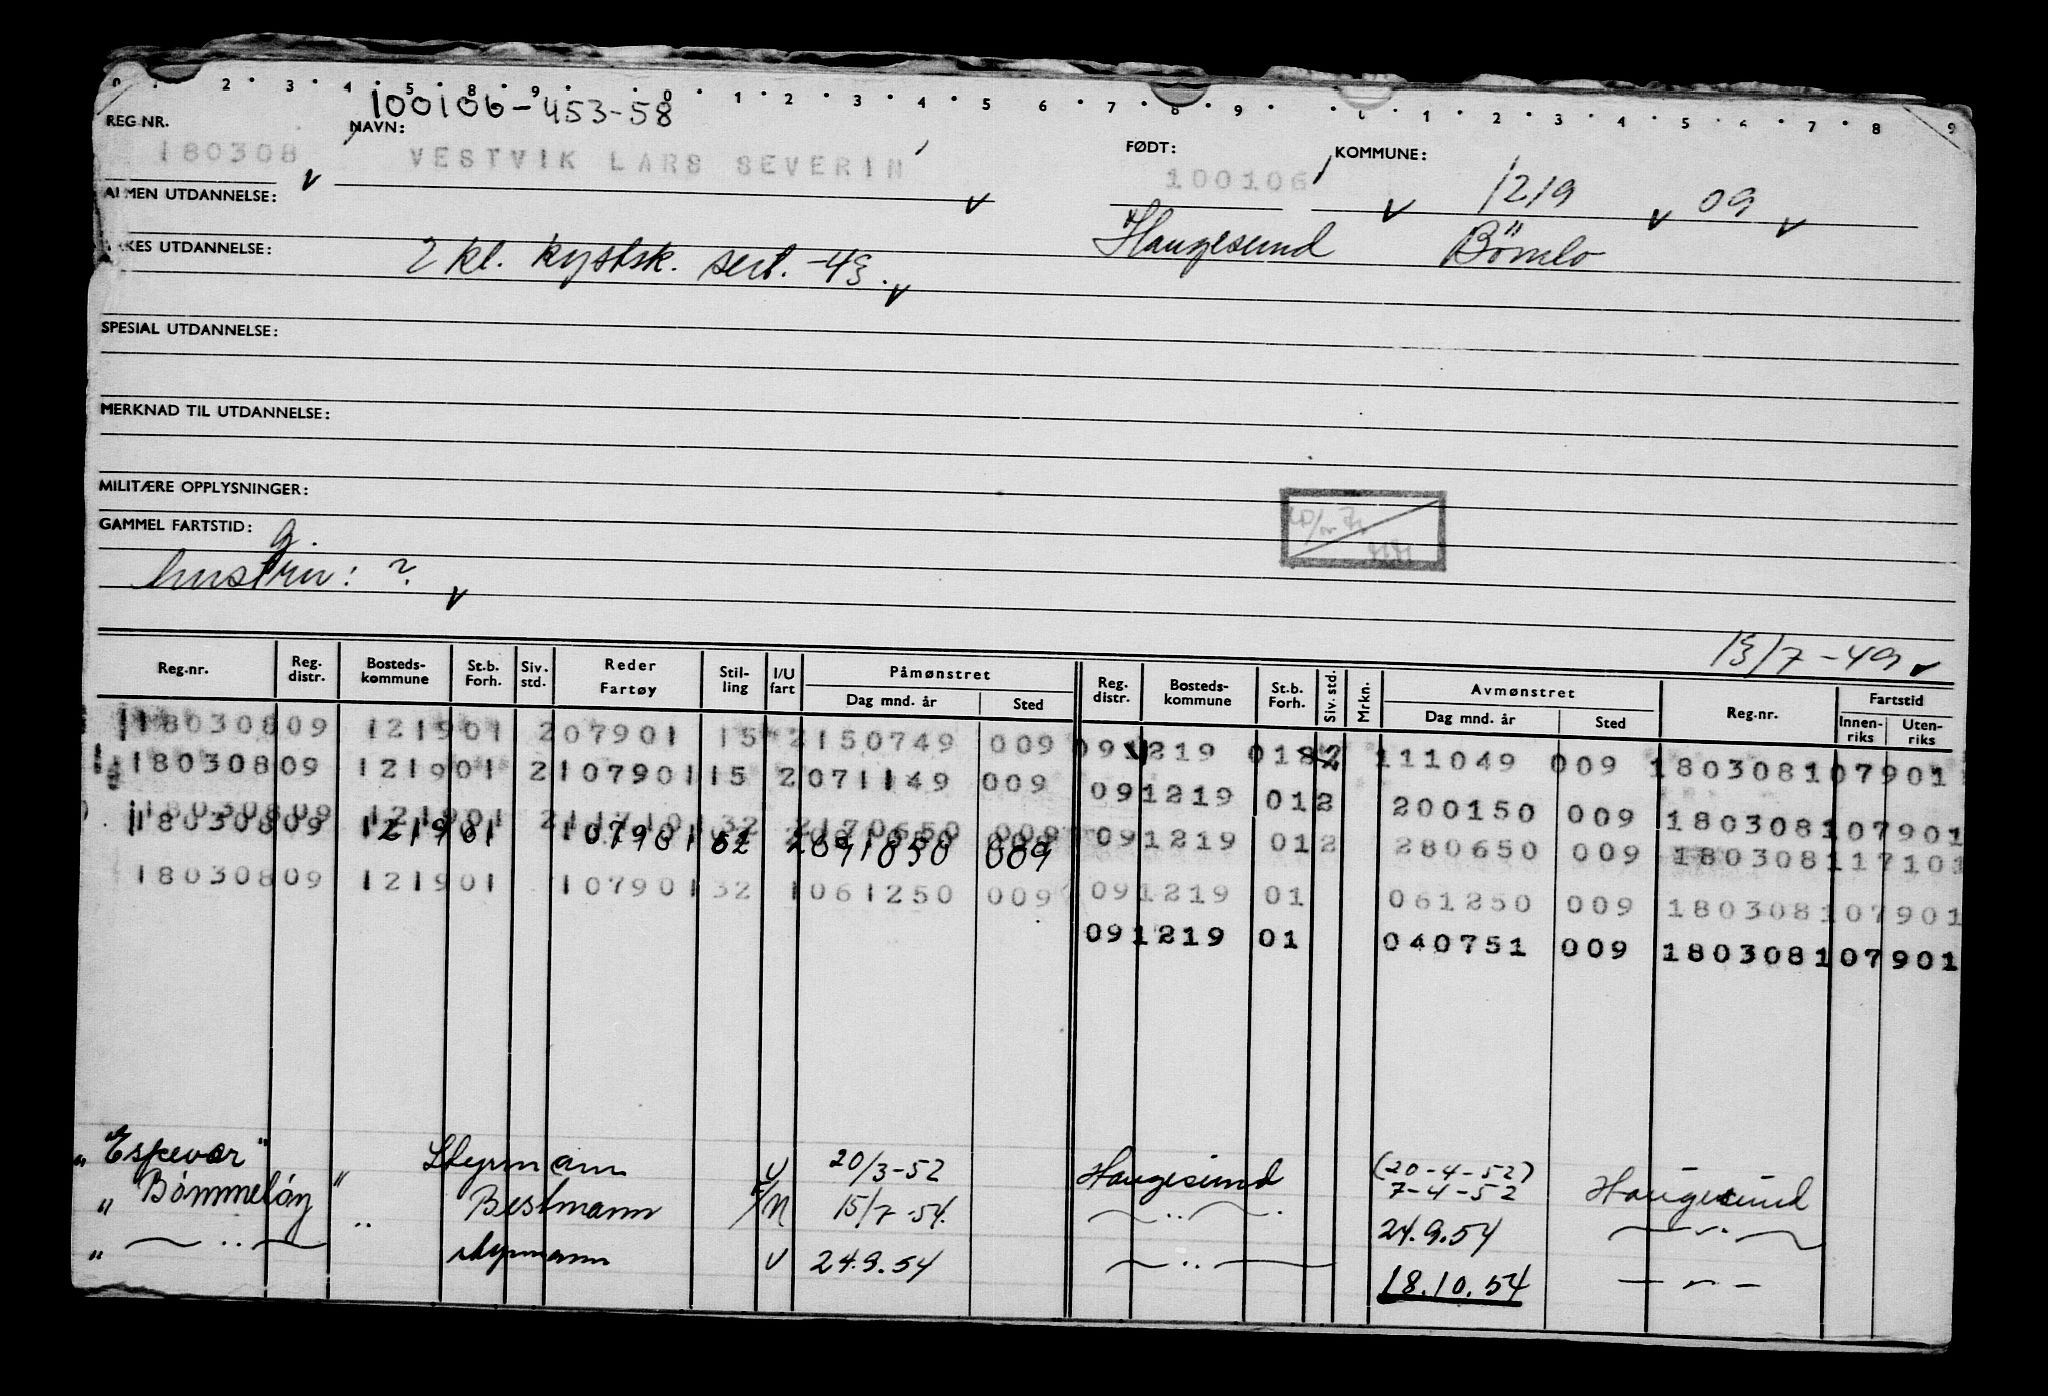 0 . 2 . 3 . 4 . 5 . 8 . 9 . . 0 . 1 . 2 . 3 . 4 . 5 6 . 7 . 8 . 9 . . . 1 . 2 . 3 . 4 . 5 . . 7 . 8 . 9
100106-453-58
REG NR. NAVN: FØDT: KOMMUNE:
180308 VESTVIK LARS SEVERIN 100106 1219 09
ALMEN UTDANNELSE: Haugesund Bömlo
YRKES UTDANNELSE: 2 kl. kystsk. sert. -43.
SPESIAL UTDANNELSE:
MERKNAD TIL UTDANNELSE:
MILITÆRE OPPLYSNINGER:
GAMMEL FARTSTID:
g.
hustru: ?
13/7-49
Reg.nr. Reg. distr. Bosteds-kommune St.b. Forh. Siv. std. Reder Fartøy Stil-ling I/U fart Påmønstret Dag mnd. år Sted Reg. distr. Bosteds-kommune St.b. Forh. Siv. std. Mrkn. Avmønstret Dag mnd. år Sted Reg.nr. Fartstid Innen-riks Uten-riks
18030809 121901 207901 15 2150749 009 091219 01 2 111049 009 180308107901
18030809 121901 210790115 2071149 009 091219 012 200150 009 180308107901
18030809 121901 211710132 2170650 009 091219 012 280650 009 180308117101
18030809 121901 107901 32 2091050 009 091219 01 061250 009 180308107901
18030809 121901 10790132 1061250 009 091219 01 040751 009 180308107901
"Espevær" Styrmann U 20/3-52 Haugesund (20-4-52) 7-4-52 Haugesund
"Bömmelöy" Bestmann 15/7-54. 24.9.54
" styrmann U 24.9.54 18.10.54